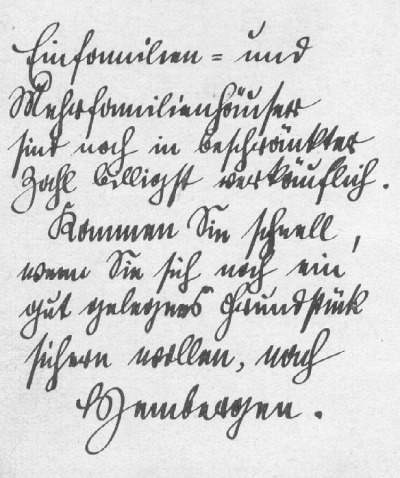 Einfamilien= und
Mehrfamilienhäuser
sind noch in beschränkter
Zahl billigst verkäuflich.
Kommen Sie schnell,
wenn Sie sich noch ein
gut gelegenes Grundstück
sichern wollen, nach